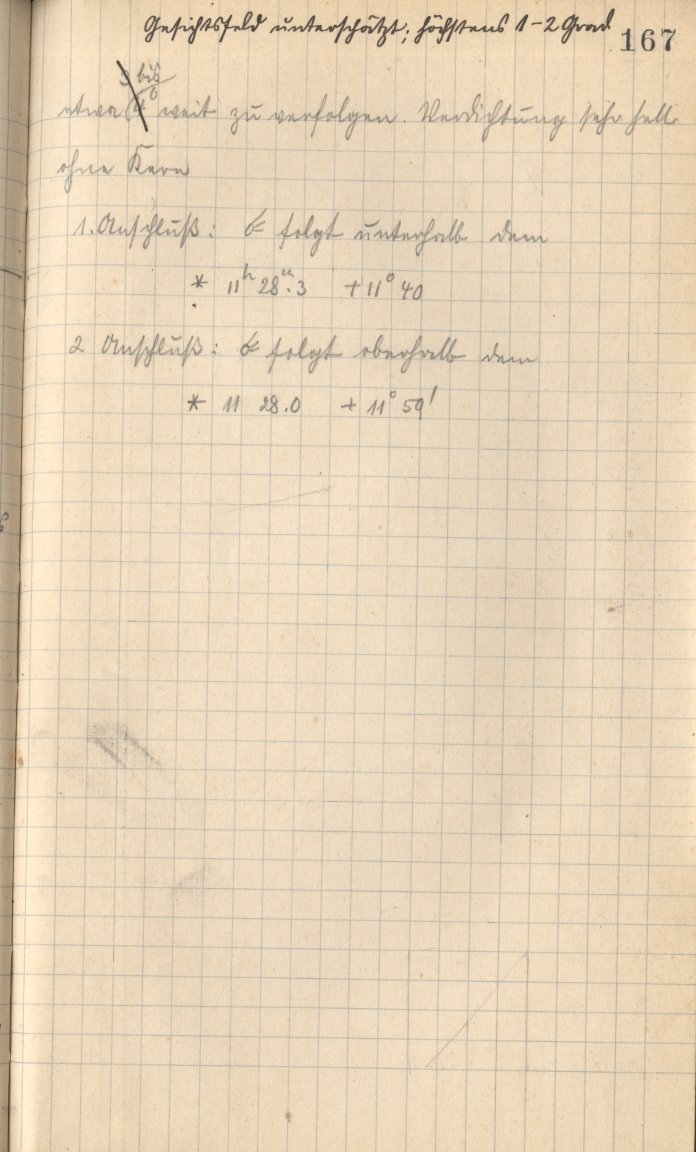 Gesichtsfeld unterschätzt; höchstens 1-2 Grad
167
3 bis
etwa 4° weit zu verfolgen. Verdichtung sehr hell
ohne Kern
1. Anschluß: ☄ folgt unterhalb dem
* 11h 28m.3 +11° 40
2 Anschluß: ☄ folgt oberhalb dem
* 11 28.0 + 11° 59'